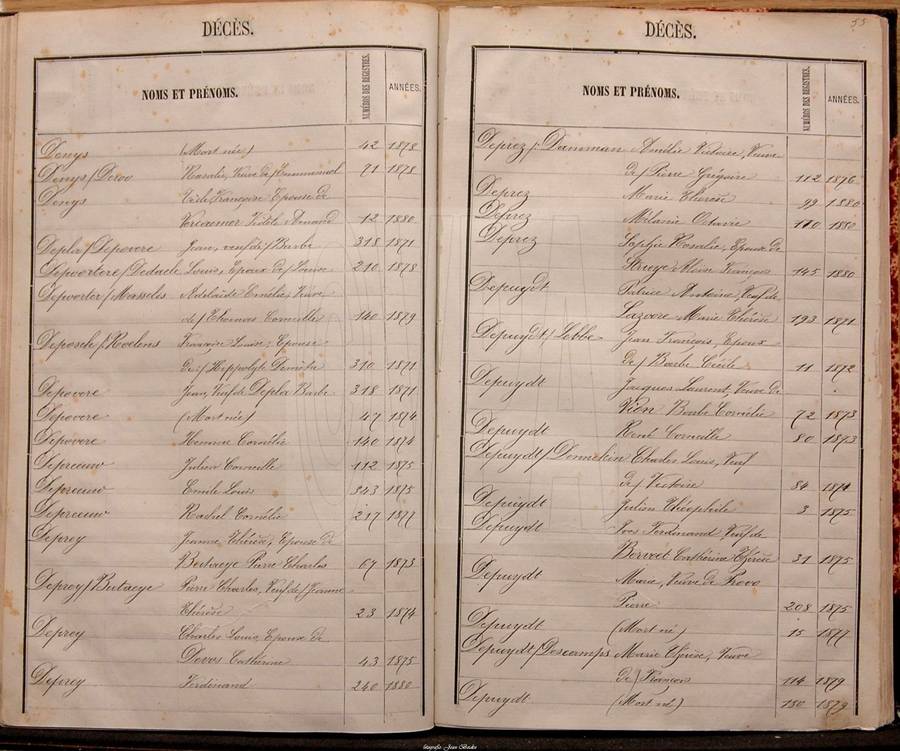 DÉCÈS.
NOMS ET PRÉNOMS. NUMÉROS DES REGISTRES. ANNÉES.
Denys (Mort née) 42 1878
Denys / Devoo Rosalie, Veuve de / Emmanuel 91 1878
Denys Françoise Epouse de
Fidèle Amand 12 1880
Depla / Depovere Jean, veuf de / Barbe 318 1871
Louis, Epoux de / Louise 210 1878
Depoorter / Masseles Adelaïde Emélie, Veuve
de / Thomas Corneille 140 1879
/ Roelens Françoise Louise, Epouse
de / Hippolyte 310 1871
Depovere Jean, Veuf de Depla Barbe 318 1871
Depovere (Mort née) 47 1874
Depovere Cornélie 140 1874
Depreeuw Julien Corneille 112 1875
Depreeuw Emile Louis 343 1875
Depreeuw Rachel Cornélie 217 1877
Deprey Jeanne Thérèse, Epouse de
Butaeye Pierre Charles 67 1873
Deprey / Butaeye Pierre Charles, Veuf de / Jeanne
Thérèse 23 1874
Deprey Charles Louis Epoux de
Devos Cathérine 43 1875
Deprey Ferdinand 240 1880
55
DÉCÈS.
NOMS ET PRÉNOMS. NUMÉROS DES REGISTRES. ANNÉES.
Deprez / Damman Amélie Victoire, Veuve
de / Pierre Grégoire 112 1876
Deprez Marie Thérèse 99 1880
Deprez Mélanie Octavie 110 1880
Deprez Sophie Rosalie, Epouse de
Aloïse François 145 1880
Depuydt Patrice Antoine, Veuf de
Marie Thérèse 193 1871
Depuydt / Lebbe Jean François, Epoux
de / Barbe Cécile 11 1872
Depuydt Jacques Laurent, Veuve de
Vien Barbe Cornélie 72 1873
Depuydt René Corneille 80 1873
Depuydt / Donnekin Charles Louis, Veuf
de / Victoire 84 1874
Depuydt Julien Théophile 3 1875
Depuydt Yves Ferdinand Veuf de
Cathérine Thérèse 31 1875
Depuydt Marie, Veuve de
Pierre 208 1875
Depuydt (Mort né) 15 1877
Depuydt / Descamps Marie Thérèse, Veuve
de / François 114 1879
Depuydt (Mort né) 180 1879